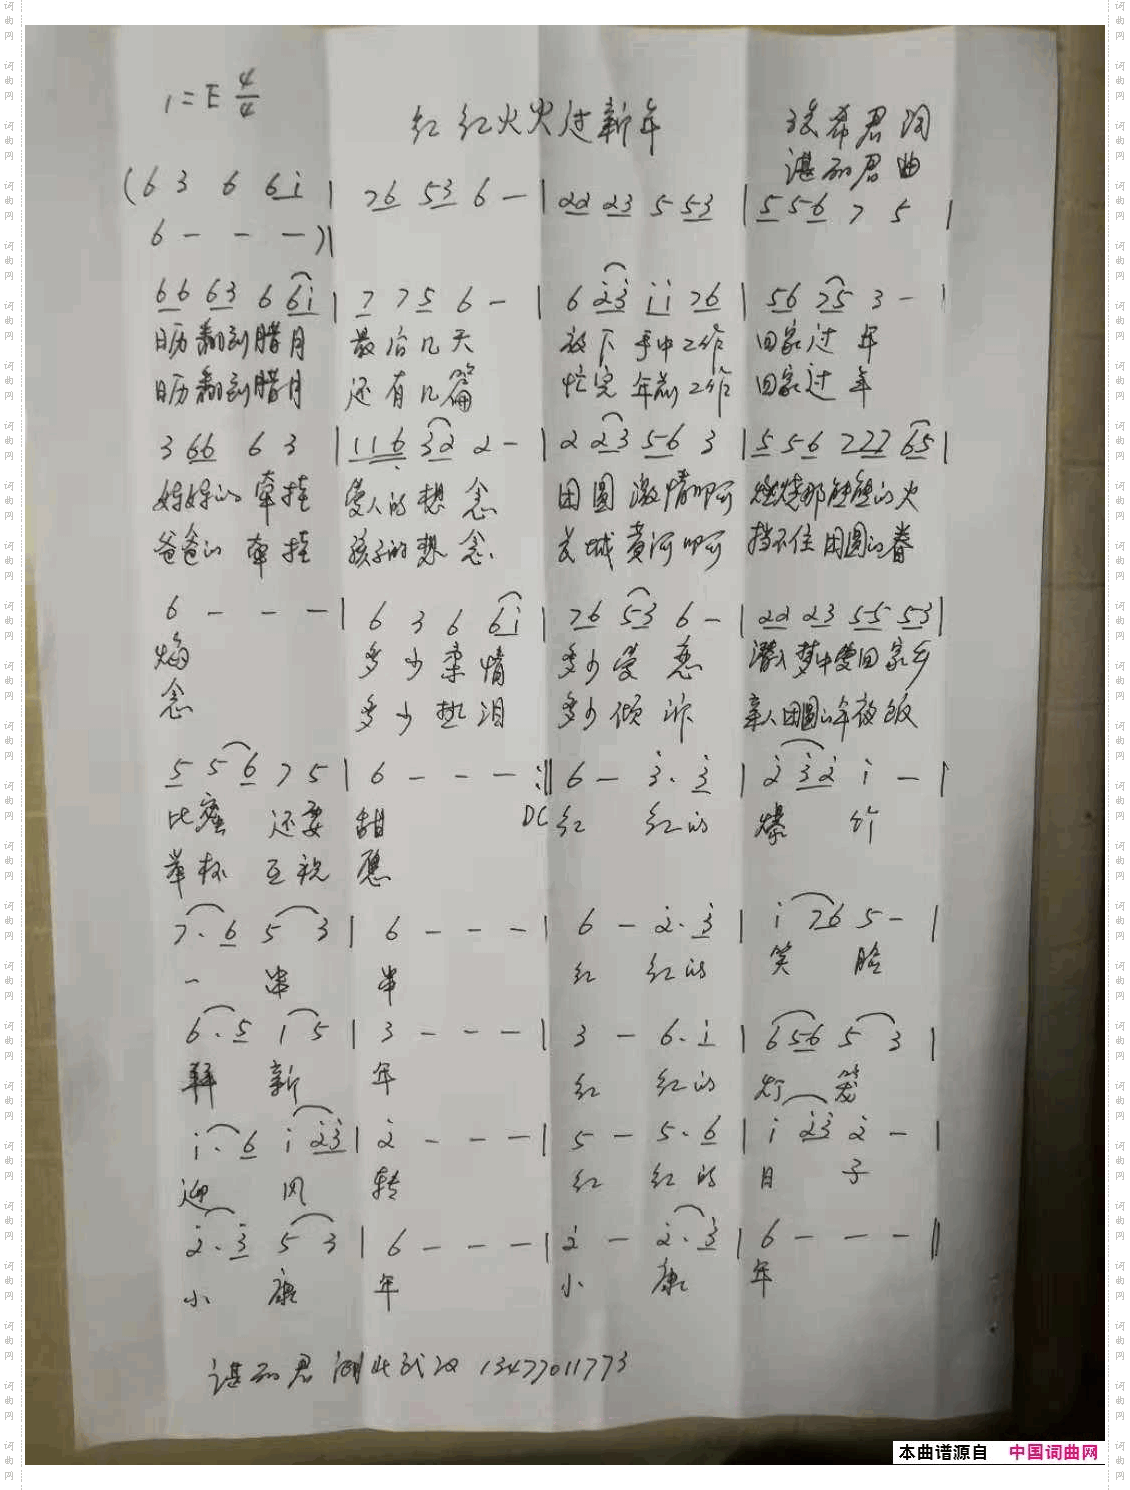 1=E 4/4
红红火火过新年
希君词
谌君曲
(6 3 6 6i | 76 53 6 - | 22 23 5 53 | 5 56 7 5 |
6 - - - )|
66 63 6 6i | 7 7 5 6 - | 6 23 ii 76 | 56 75 3 - |
日历翻到腊月 最后几天 放下手中工作 回家过年
日历翻到腊月 还有几篇 忙完年前工作 回家过年
3 66 6 3 | 116 32 2 - | 2 23 56 3 | 5 56 777 65 |
妈妈的牵挂 爱人的想念 团圆激情啊 燃烧那的火
爸爸的牵挂 孩子的想念 长城黄河啊 挡不住团圆的眷
6 - - - | 6 3 6 6i | 76 53 6 - | 22 23 55 53 |
焰 多少柔情 多少爱恋 潜入梦中爱回家乡
念 多少热泪 多少倾诉 亲人团圆的年夜饭
5 5 6 7 5 | 6 - - - :‖ 6 - 3. 3 | 2 32 i - |
比蜜还要甜 DC 红 红的 爆竹
举杯互祝愿
7. 6 5 3 | 6 - - - | 6 - 2. 3 | i 76 5 - |
一串串 红 红的 笑脸
6. 5 i 5 | 3 - - - | 3 - 6. i | 6 56 5 3 |
拜新年 红 红的 灯笼
i. 6 i 23 | 2 - - - | 5 - 5. 6 | i 23 2 - |
迎风转 红 红的 日子
2. 3 5 3 | 6 - - - | 2 - 2. 3 | 6 - - - ‖
小康年 小康年
谌君 湖北武汉 13477011773
本曲谱源自 中国词曲网